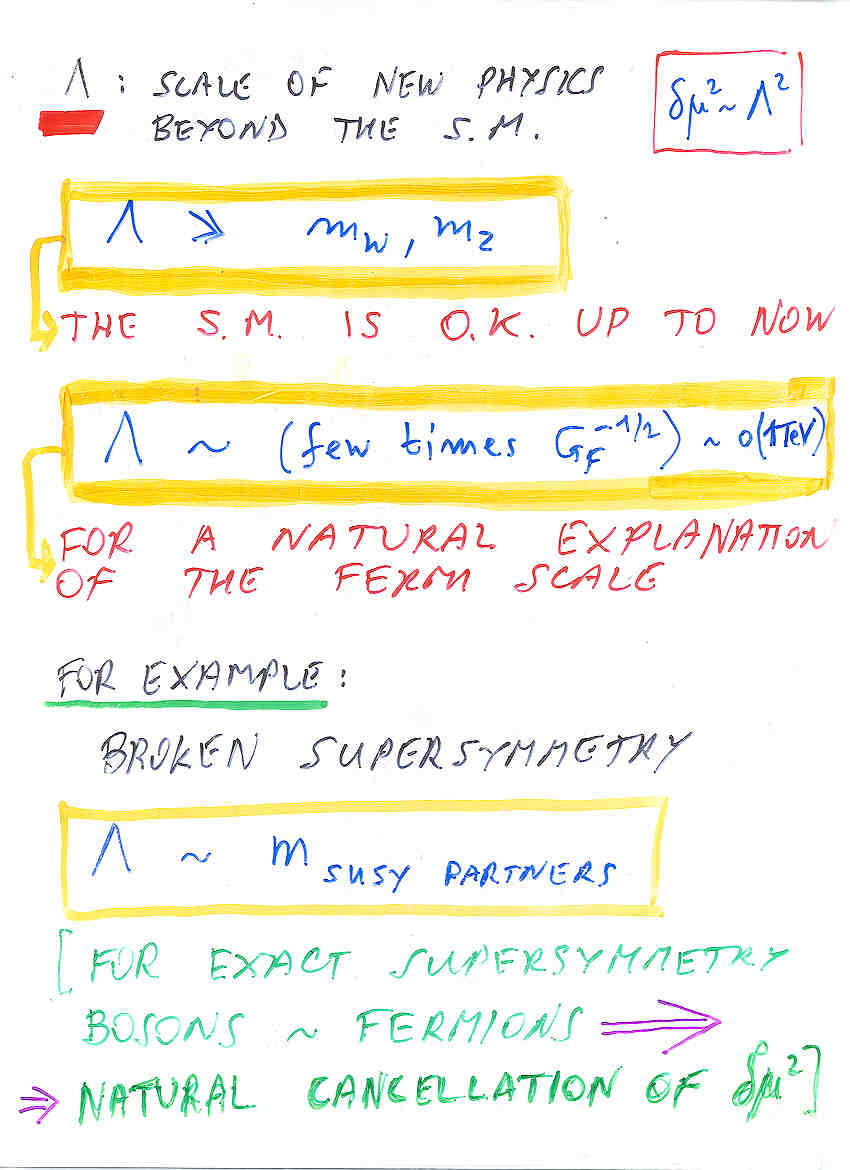 Λ : SCALE OF NEW PHYSICS
BEYOND THE S.M.
δμ² ~ Λ²
Λ ≫ m_W, m_Z
THE S.M. IS O.K. UP TO NOW
Λ ~ (few times G_F^-1/2) ~ O(1TeV)
FOR A NATURAL EXPLANATION
OF THE FERMI SCALE
FOR EXAMPLE:
BROKEN SUPERSYMMETRY
Λ ~ m SUSY PARTNERS
[FOR EXACT SUPERSYMMETRY
BOSONS ~ FERMIONS ⟹
⇒ NATURAL CANCELLATION OF δμ²]